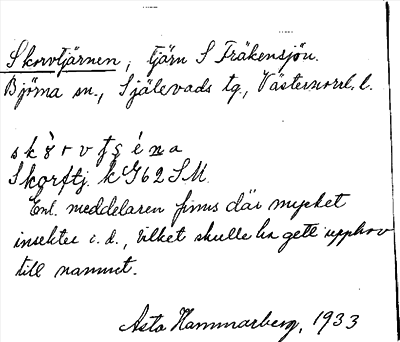 Skorvtjärnen, tjärn S Träkensjön.
Björna sn., Själevads tg., Västernorrl. l.
Skorftj. k G62 SM.
Enl. meddelaren finns där mycket
insekter i. d., vilket skulle ha gett upphov
till namnet.
Asta Hammarberg, 1933